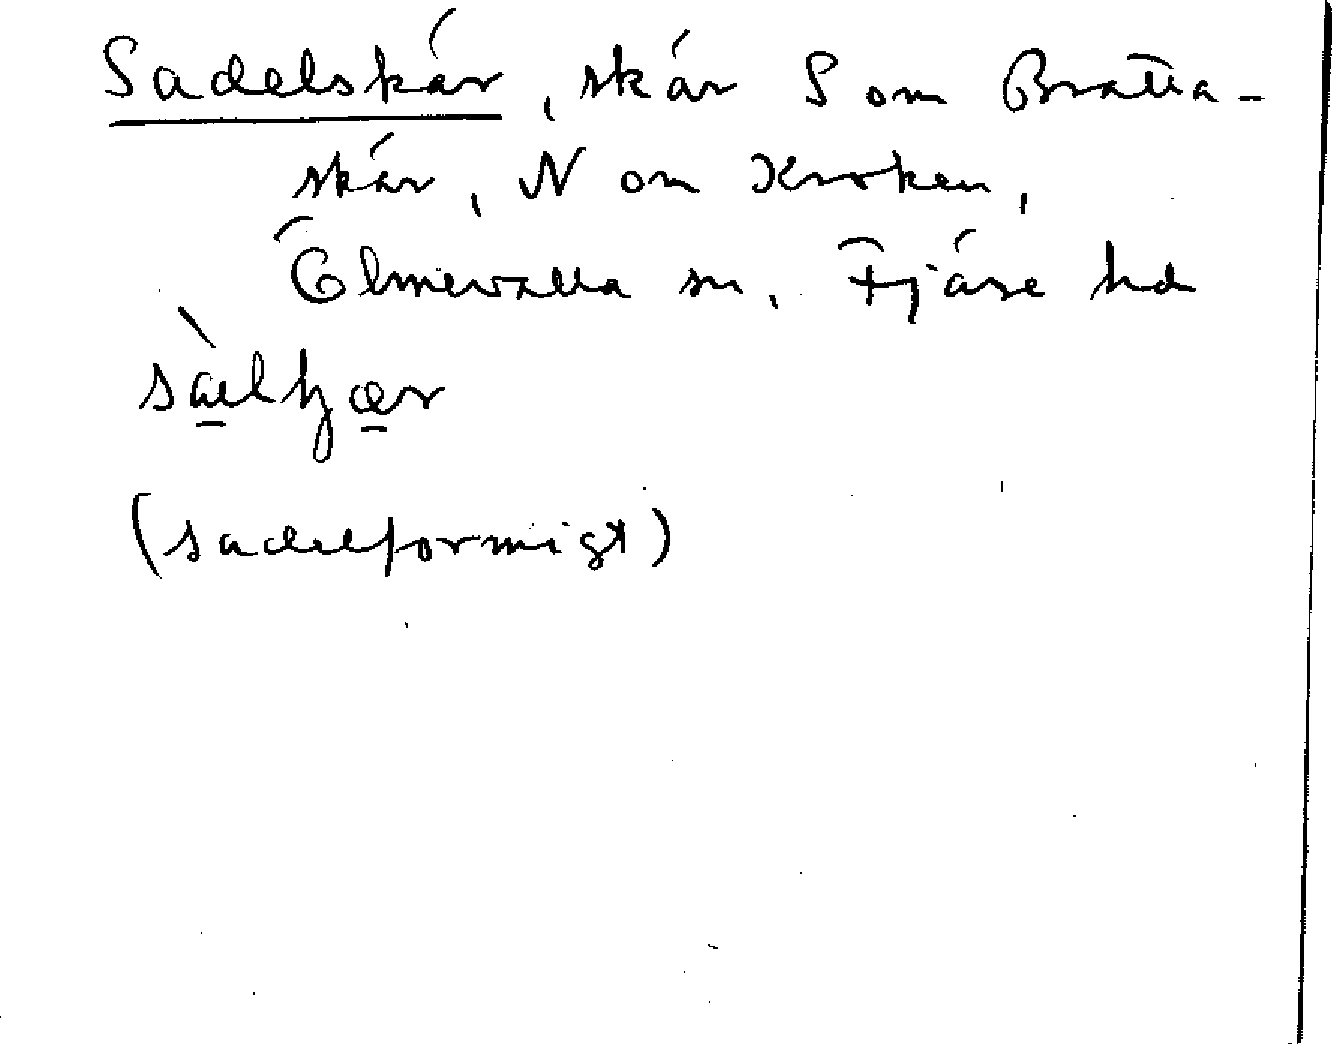 Sadelskär, skär S om Bratta-
skär, N om Kroken,
Ölmevalla sn, Fjäre hd
(sadelformigt)